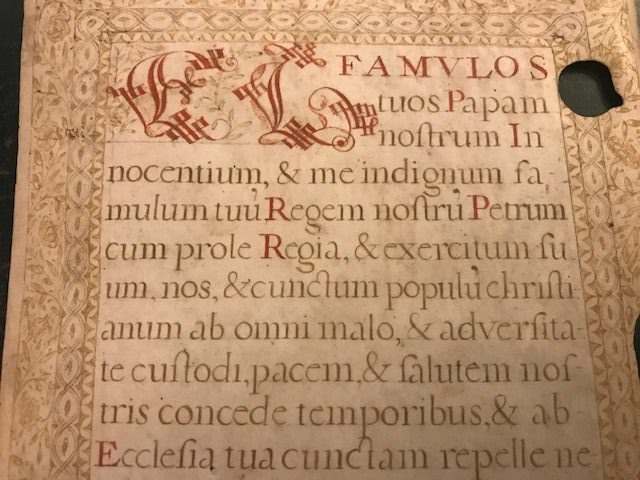 ET FAMVLOS
tuos Papam
noſtrum In
nocentium, & me indignum fa,
mulum tuũ Regem noſtrũ Petrum
cum prole Regia, & exercitum ſu
um, nos, & cunctum populũ chriſti
anum ab omni malo, & adverſita-
te cuſtodi, pacem, & ſalutem noſ-
tris concede temporibus, & ab
Eccleſia tua cunctam repelle ne-